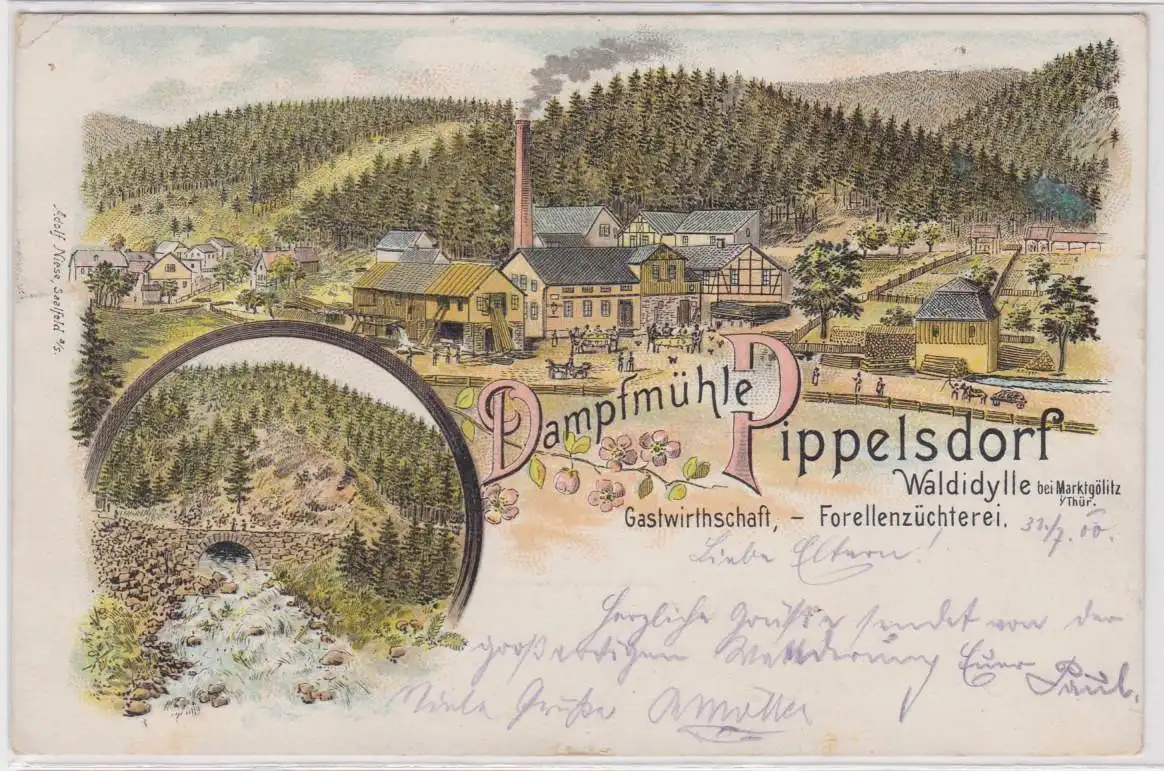 Adolf Niese, Saalfeld a/S.
Dampfmühle Pippelsdorf
Waldidylle bei Marktgölitz
i/Thür.
Gastwirthschaft, – Forellenzüchterei.
31./7. 00.
Liebe Eltern!
Herzliche Grüße sendet von der
großartigen Wanderung Euer Paul.
Viele Grüße